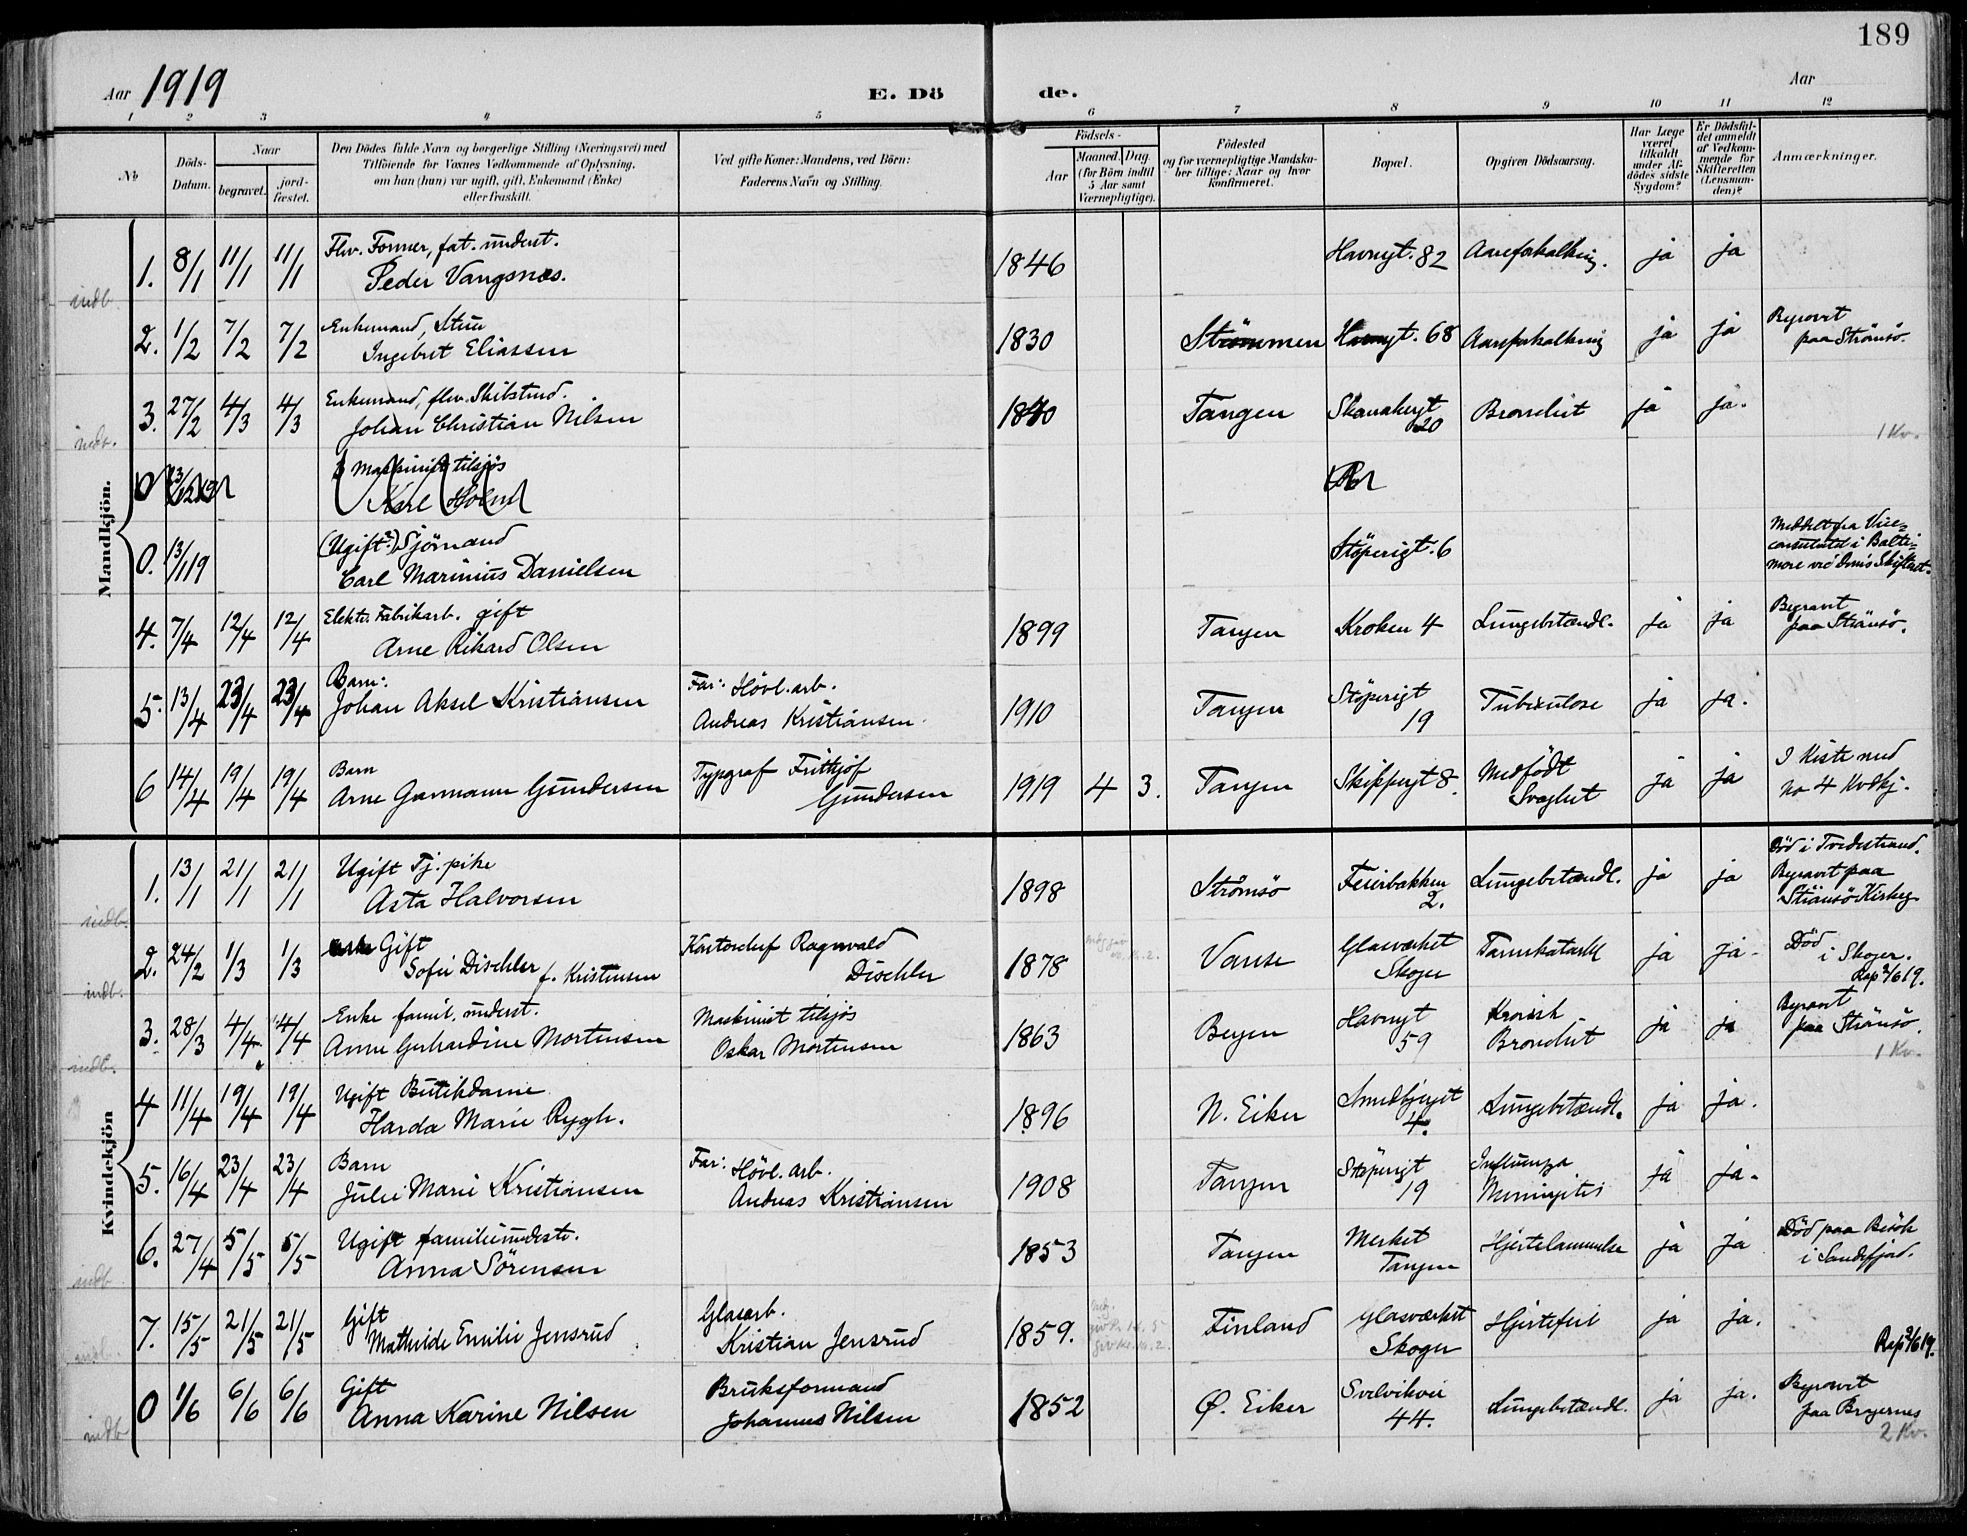 189
Aar 1919
E. Döde.
Aar
1 2 3 4 5 6 7 8 9 10 11 12
No
Döds-Datum.
Naar
begravet.
jord-fæstet.
Den Dödes fulde Navn og borgerlige Stilling (Næringsvei) med
Tilföiende for Voxnes Vedkommende af Oplysning,
om han (hun) var ugift, gift, Enkemand (Enke)
eller fraskilt.
Ved gifte Koner: Mandens, ved Börn:
Faderens Navn og Stilling.
Födsels-
Aar
Maaned. Dag.
(for Börn indtil
5 Aar samt
Værnepligtige).
Födested
og for værnepligtige Mandska-
ber tillige: Naar og hvor
konfirmeret.
Bopæl.
Opgiven Dödsaarsag.
Har Læge
været
tilkaldt
under Af-
dödes sidste
Sygdom?
Er Dödsfal-
det anmeldt
af Vedkom-
mende for
Skifteretten
(Lensman-
den)?
Anmærkninger.
Mandkjön.
indb.
1. 8/1 11/1 11/1 Flv. Former, fat. underst.
Peder Vangsnæs.
1846 Havnegt. 82 Aareforkalkning. ja ja
2. 1/2 7/2 7/2 Enkemand, Stuer
Ingebret Eliassen
1830 Strömmen Havnegt. 68 Aareforkalkning ja ja Begravet
paa Strömsö.
indb.
3. 27/2 4/3 4/3 Enkemand, flv. Skibstmd.
Johan Christian Nilsen
1840 Tangen 20 Bronchit ja ja.
1 Kv.
0 Maskinist tilsjös
Karl Holm
0. 13/1 19 (Ugift?) Sjömand
Carl Marinius Danielsen
Stöperigt. 6 Meddelt fra Vice-
consulatet i Balti-
more
4. 7/4 12/4 12/4 Elektr. Fabrikarb. gift
Arne Rikard Olsen
1899 Tangen Kroken 4 Lungebetændl. ja ja Begravet
paa Strömsö.
5. 13/4 23/4 23/4 Barn:
Johan Aksel Kristiansen
Far: Hövl. arb.
Andreas Kristiansen.
1910 Tangen Stöperigt
19 Tuberkulose ja ja.
6 14/4 19/4 19/4 Barn
Arne Garmann Gundersen
Typograf Frithjof
Gundersen
1919 4 3. Tangen Skippergt 8. Medfödt
Svaghet ja ja I Kiste med
No 4 Kvdkj.
Kvindekjön
indb.
1. 13/1 21/1 21/1 Ugift Tj. pike
Asta Halvorsen
1898 Strömsö Feierbakken
2. Lungebetændl. ja ja Död i Tvedestrand.
Begravet paa
Strömsö Kirkeg.
indb.
2. 24/2 1/3 1/3 Gift
Sofie Dischler f. Kristensen
Kontorchef Ragnvald
Dischler
1878 Vanse Glasværket
Skoger Tarmkatarrh ja ja. Död
i Skoger.
Rap 2/6 19.
indb.
3. 28/3 4/4 4/4 Enke famil. underst.
Anne Gerhardine Mortensen
Maskinist tilsjös
Oskar Mortensen
1863 Bergen Havnegt
59 Kronisk
Bronchit ja ja Begravet
paa Strömsö.
1 Kv.
4 11/4 19/4 19/4 Ugift Butikdame
Harda Marie Rygh.
1896 N. Eiker Smedbjerggt
4. Lungebetændl. ja ja.
5. 16/4 23/4 23/4 Barn
Julie Marie Kristiansen
Far: Hövl. arb.
Andreas Kristiansen
1908 Tangen Stöperigt
19 Influenza
Meningitis ja ja.
indb
6. 27/4 5/5 5/5 Ugift familieunderst.
Anna Sörensen
1853 Tangen Merket
Tangen Hjertelammelse ja ja Död paa Besök
i Sandefjord.
indb.
7. 15/5 21/5 21/5 Gift
Mathilde Emilie Jensrud
Glasarb.
Kristian Jensrud
1859. Finland Glasværket
Skoger Hjertefeil ja ja.
Rap 2/6 19.
indb
0 1/6 6/6 6/6 Gift
Anna Karine Nilsen
Bruksformand
Johannes Nilsen
1852 Ø. Eiker Svelvikvei
44. Lungebetændl. ja ja. Begravet
paa Bragernes
2 Kv.